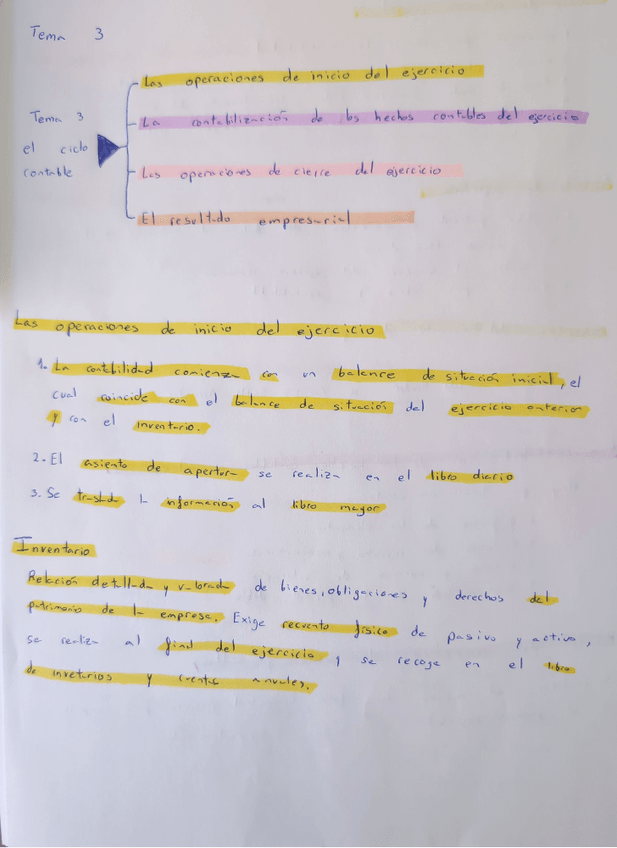 Tema 3
Las operaciones de inicio del ejercicio
Tema 3
el ciclo
contable
La contabilización de los hechos contables del ejercicio
Las operaciones de cierre del ejercicio
El resultado empresarial
Las operaciones de inicio del ejercicio
1. La contabilidad comienza con un balance de situación inicial, el
cual coincide con el balance de situación del ejercicio anterior
y con el inventario.
2. El asiento de apertura se realiza en el libro diario
3. Se traslada la información al libro mayor
Inventario
Relación detallada y valorada de bienes, obligaciones y derechos del
patrimonio de la empresa. Exige recuento físico de pasivo y activo,
se realiza al final del ejercicio y se recoge en el libro
de invetarios y cuentas anuales.